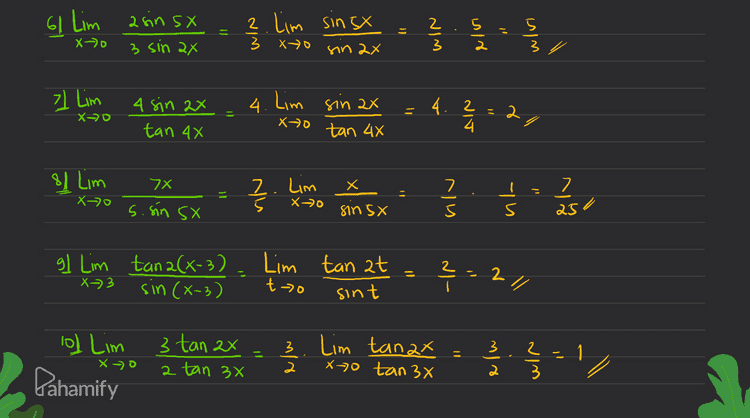 6] Lim x→0 2 sin 5x / 3 sin 2x = 2/3 · Lim x→0 sin 5x / sin 2x = 2/3 · 5/2 = 5/3 //
7] Lim x→0 4 sin 2x / tan 4x = 4 · Lim x→0 sin 2x / tan 4x = 4 · 2/4 = 2 //
8] Lim x→0 7x / 5 · sin 5x = 7/5 · Lim x→0 x / sin 5x = 7/5 · 1/5 = 7/25 //
9] Lim x→3 tan 2(x-3) / sin (x-3) = Lim t→0 tan 2t / sin t = 2/1 = 2 //
10] Lim x→0 3 tan 2x / 2 tan 3x = 3/2 · Lim x→0 tan 2x / tan 3x = 3/2 · 2/3 = 1 //
Pahamify